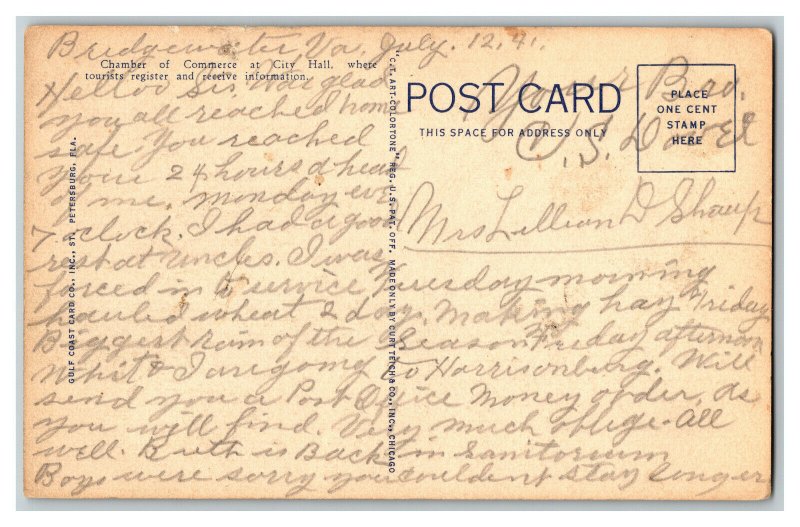 Bridgewater, Va, July. 12, 41.
Chamber of Commerce at City Hall, where
tourists register and receive information.
Helloo Sis. Was glad
you all reached home
safe you reached
your 24 hours ahead
of me, monday eve
7 o'clock. I had a good
rest at Uncles. I was
forced in to service Tuesday morning
hauled wheat 2 days. Making hay Friday
Biggest rain of the Season Friday afternoon
& I are going to Harrisonburg. Will
send you a Post Office Money order, as
you will find. Very much oblige. All
well. Ruth is Back in Sanitorium
Boys were sorry you couldent stay longer
GULF COAST CARD CO., INC., ST. PETERSBURG, FLA.
"C.T. ART-COLORTONE" REG. U.S. PAT. OFF. MADE ONLY BY CURT TEICH & CO., INC., CHICAGO
POST CARD
THIS SPACE FOR ADDRESS ONLY
PLACE
ONE CENT
STAMP
HERE
Your Bro.
Mrs Lillian D Sharp